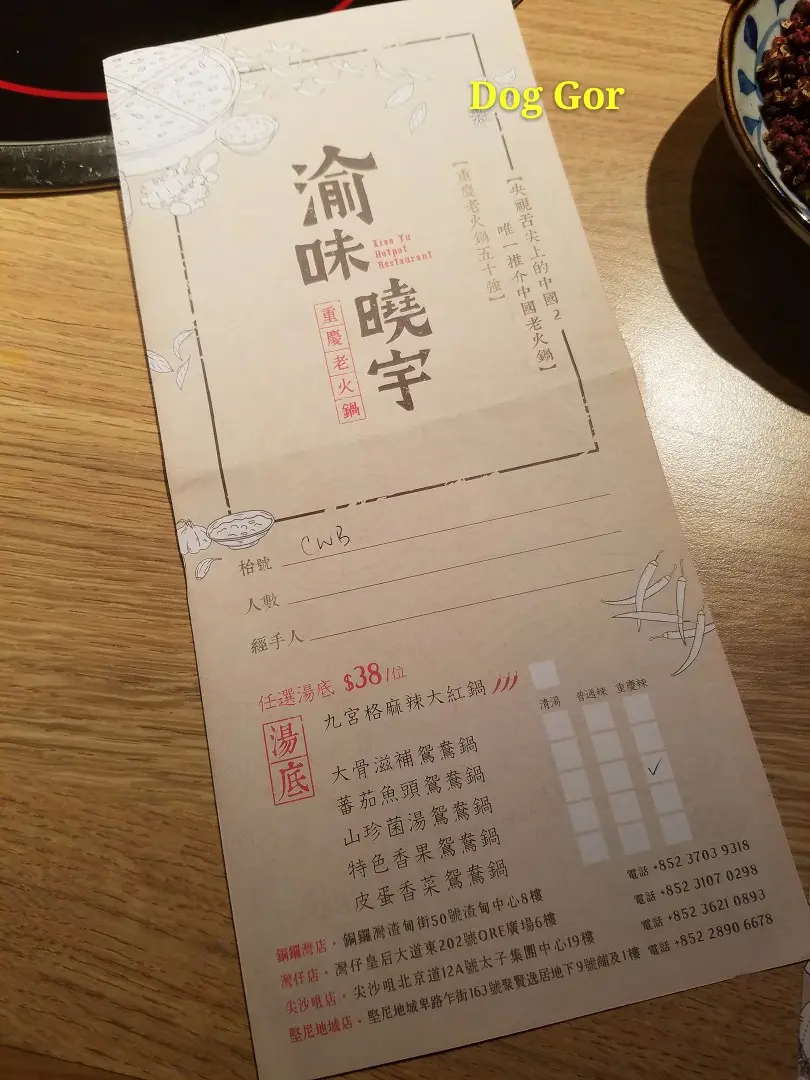 Dog Gor
渝味
曉宇
Xiao Yu
Hotpot
Restaurant
重慶老火鍋
【央視舌尖上的中國2
唯一推介中國老火鍋】
【重慶老火鍋五十強】
枱號 CWB
人數
經手人
任選湯底 $38/位
湯底
清湯 普通辣 重慶辣
九宮格麻辣大紅鍋
大骨滋補鴛鴦鍋
蕃茄魚頭鴛鴦鍋
山珍菌湯鴛鴦鍋
特色香果鴛鴦鍋
皮蛋香菜鴛鴦鍋
銅鑼灣店・銅鑼灣渣甸街50號渣甸中心8樓 電話 +852 3703 9318
灣仔店・灣仔皇后大道東202號QRE廣場6樓 電話 +852 3107 0298
尖沙咀店・尖沙咀北京道12A號太子集團中心19樓 電話 +852 3621 0893
堅尼地城店・堅尼地城卑路乍街163號聚賢逸居地下9號舖及1樓 電話 +852 2890 6678